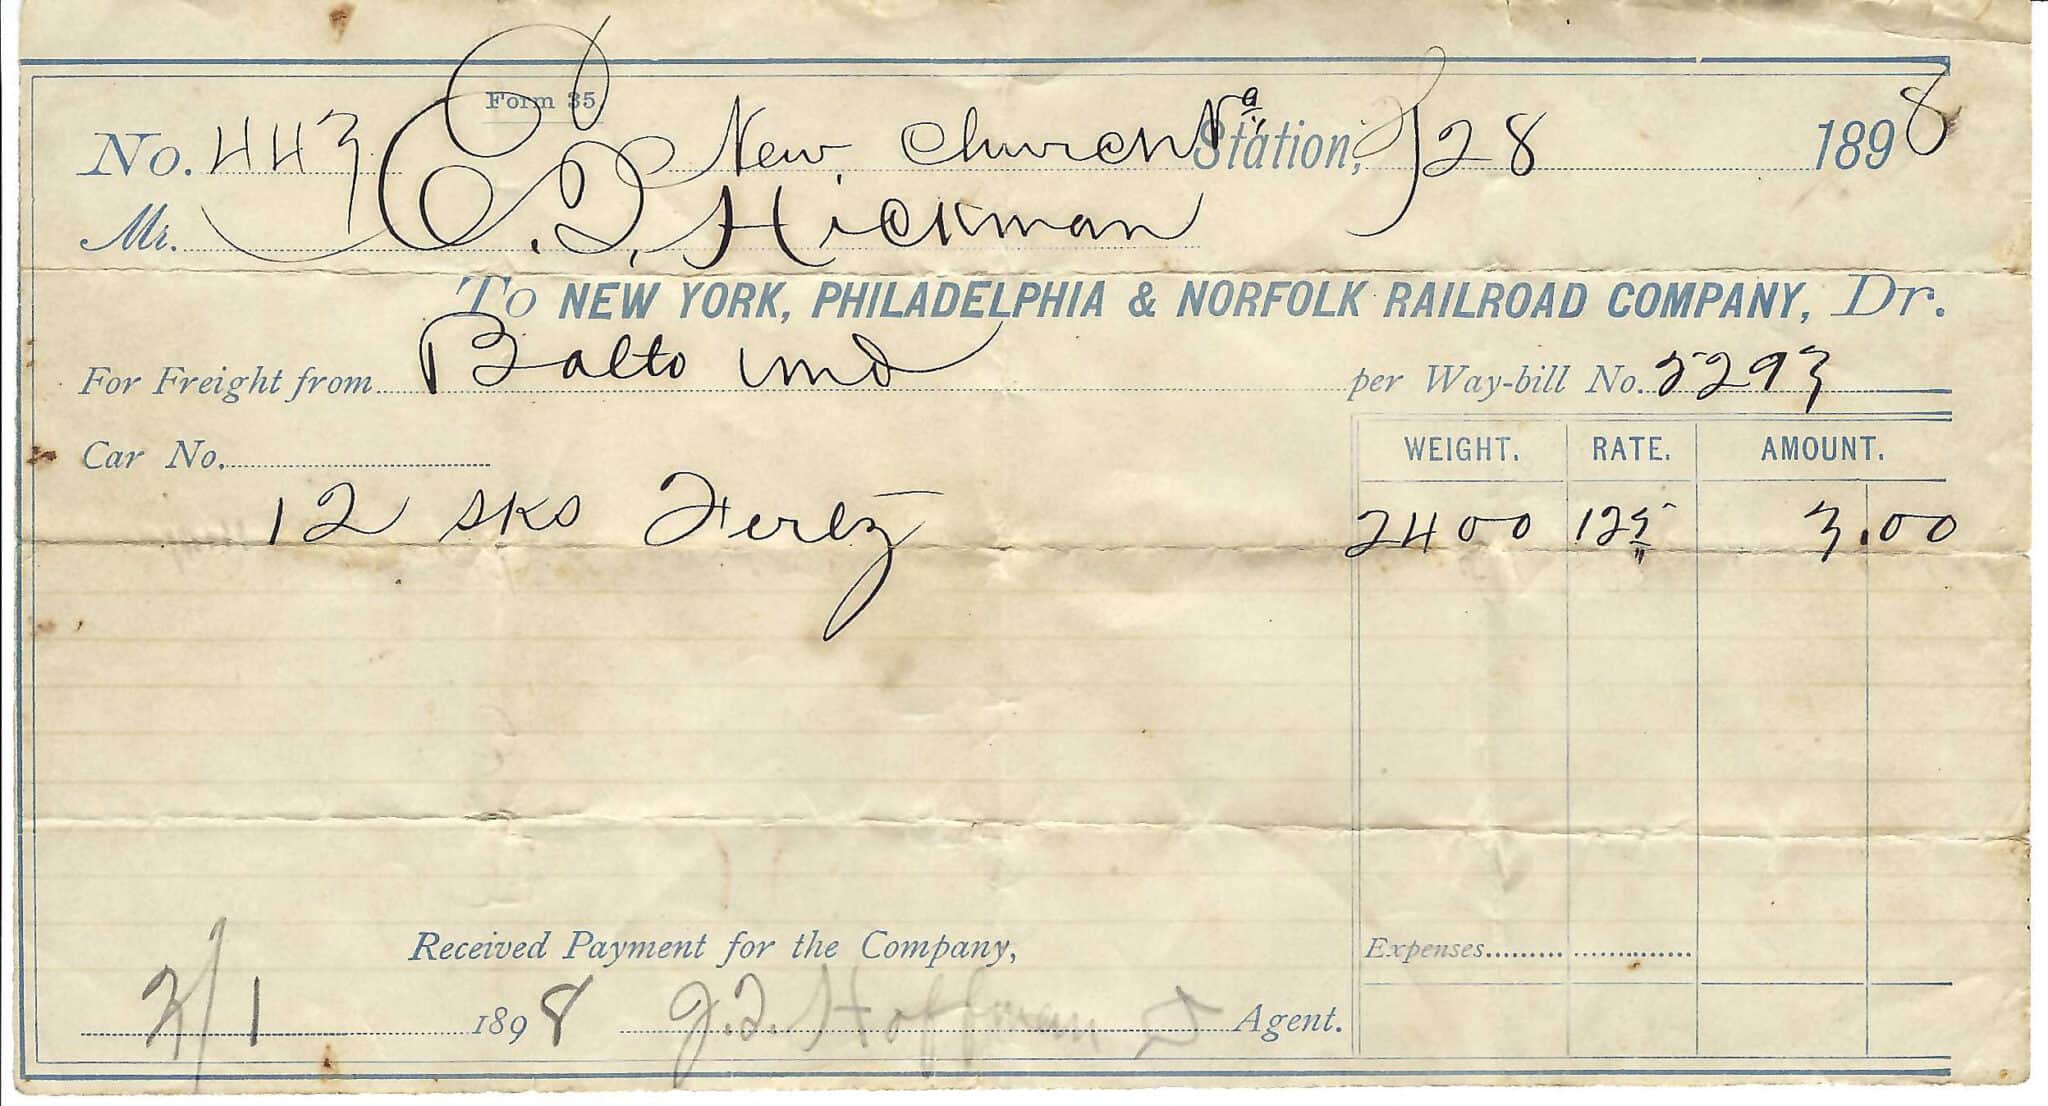 Form 35
No. 443 New Church Va. Station, 2/28 1898
Mr. C. D. Hickman
To NEW YORK, PHILADELPHIA & NORFOLK RAILROAD COMPANY, Dr.
For Freight from Balto Md per Way-bill No. 2293
Car No.
WEIGHT. RATE. AMOUNT.
12 sks Ferlz 2400 125 3.00
Received Payment for the Company,
Expenses
3/1 1898 J. T. Hoffman Agent.